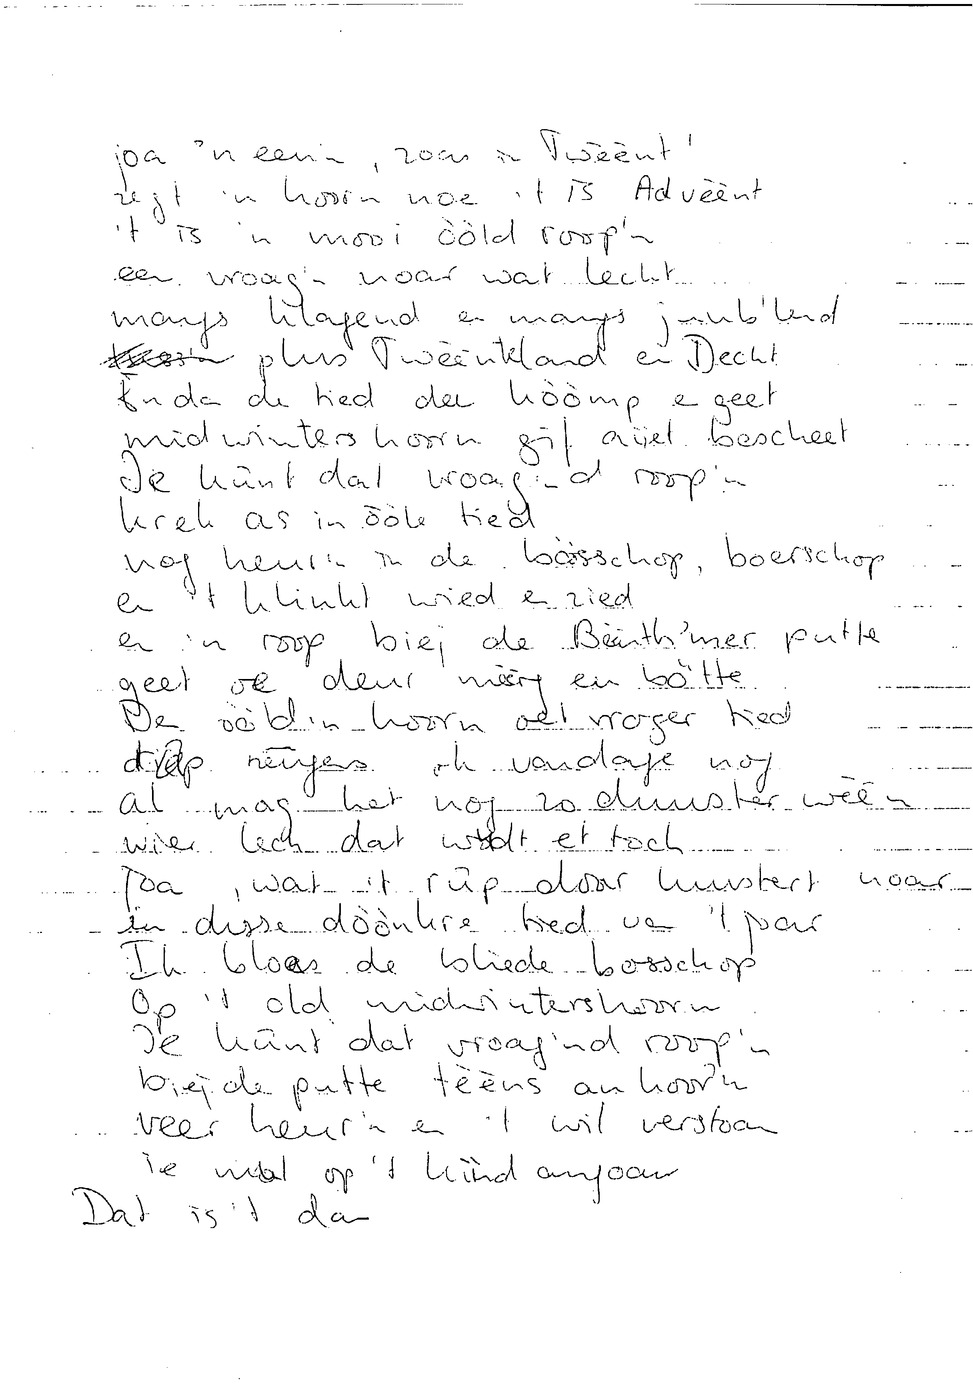 joa 'n een'n, zoas in Twèènt'
zegt 'n hoorn noe 't is Advèènt
't is 'n mooi òòld roop'n
een vroag'n noar wat lecht
mangs klagend en mangs juub'lend
plus Twèènteland en Decht
En da de tied der hòòmp e geet
midwintershoorn gif aijet bescheet
Je kûnt dat vroag'nd roop'n
krek as in òòle tied
nog heur'n in de bösschop, boerschop
en 't klinkt wied en zied
en 'n roop biej de Bèènth'mer putte
geet oe deur mèèrg en bötte
De òòld'n hoorn oet vroger tied
ik vandage nog
al mag het nog zo duuster wèè'n
wier lech dat wödt et toch
Joa, wat 't rûp door luustert noar
in disse dòònkre tied va 't joar
Ik bloas de bliede bosschop
Op 't old midwintershoorn
Je kûnt dat vroag'nd roop'n
biej de putte tèèns an hoor'n
veer heur'n en 't wil verstoan
ie op 't kiind angoan
Dat is 't dan